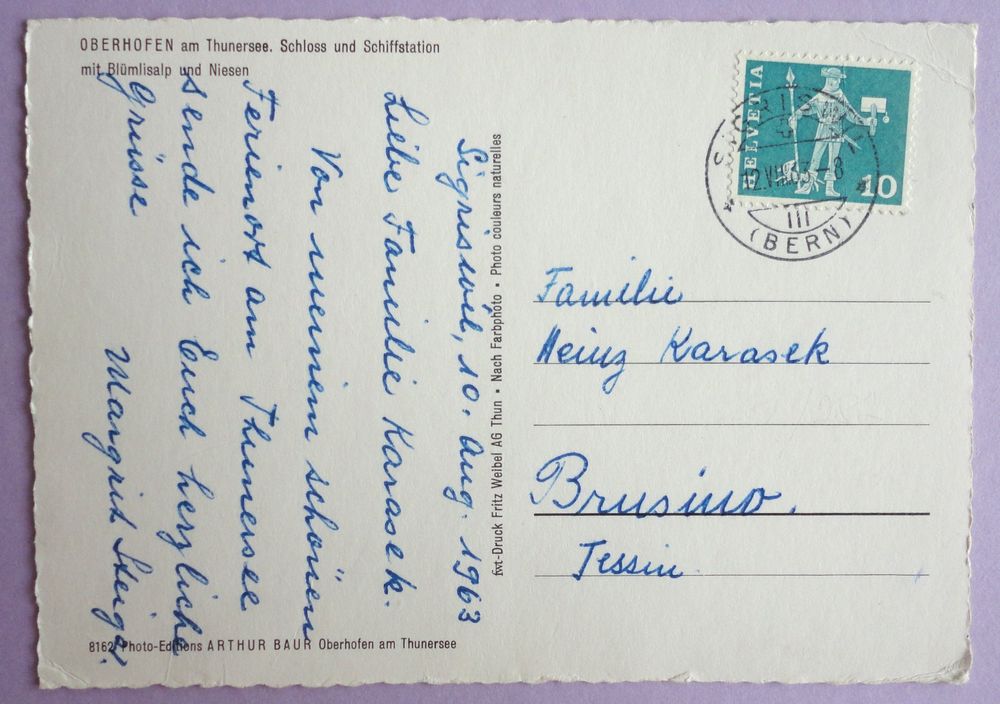 OBERHOFEN am Thunersee. Schloss und Schiffstation
mit Blümlisalp und Niesen
Sigriswil, 10. Aug. 1963
Liebe Familie Karasek.
Von meinem schönen
Ferienort am Thunersee
sende ich Euch herzliche
Grüsse
Margrit
fwt-Druck Fritz Weibel AG Thun • Nach Farbphoto • Photo couleurs naturelles
8162 Photo-Editions ARTHUR BAUR Oberhofen am Thunersee
HELVETIA
10
SIGRISWIL
12.VIII.63-8
(BERN)
Familie
Heinz Karasek
Brusino.
Tessin